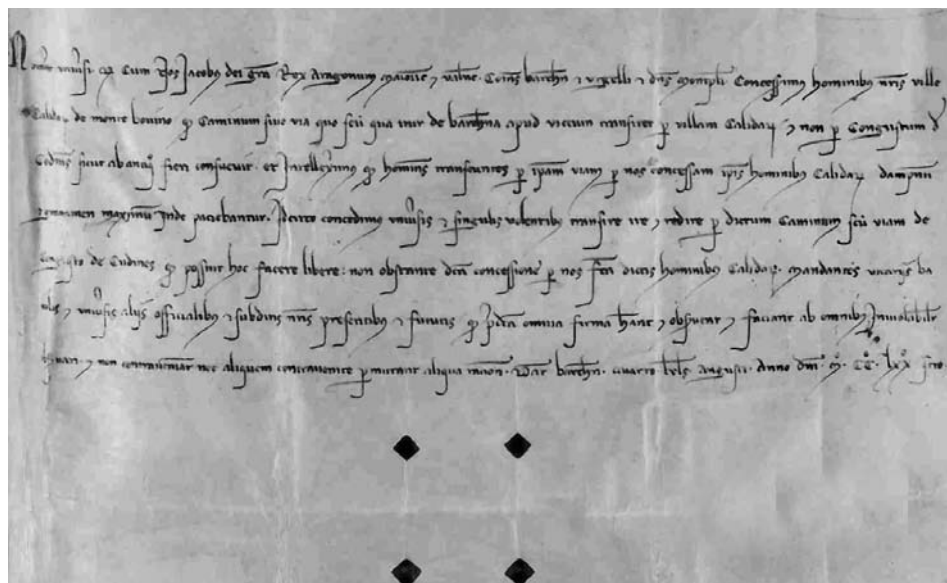 Noverint universi quod Cum Nos Jacobus dei gra Rex Aragonum maiorice et valene Comes barchn et urgelli et dns montispli Concessimus hominibus nris ville
Calidar de monte bovino quod Caminum sive via quo seu qua itur de barchna apud vicum transiret per villam Calidar et non per Congustum d
Cedines sicut ab antiquo fieri consuevit et Intellexerimus quod homines transeuntes per ipam viam per nos concessam ipis hominibus Calidar dampnum
et maximum Inde paciebantur Idcirco concedimus universis et singulis volentibus transire ire et redire per dictum Caminum seu viam de
de Cudines quod possint hoc facere libere non obstante dca concessione per nos fca dictis hominibus Calidar mandantes vicariis ba
iulis et universis aliis officialibus et subditis nris presentibus et futuris quod pdca omnia firma hant et observent et faciant ab omnibus Inviolabiliter
et non contraveniant nec aliquem contravenire permittant aliqua racon Dat barchn quarto kls Augusti Anno dni m cc lxx